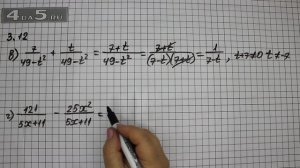 4DA5.RU
3.12
в) 7/(49-t²) + t/(49-t²) = (7+t)/(49-t²) = (7+t)/((7-t)(7+t)) = 1/(7-t), t+7≠0 t≠-7
г) 121/(5x+11) - 25x²/(5x+11) =